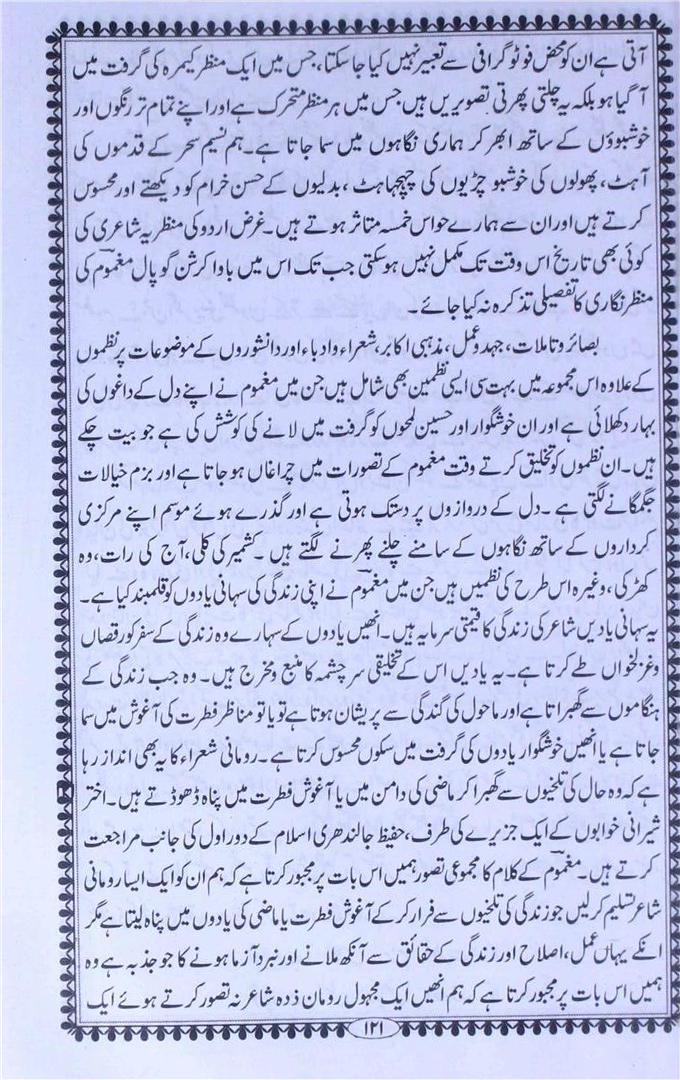 آتی ہے ان کو محض فوٹو گرافی سے تعبیر نہیں کیا جا سکتا، جس میں ایک منظر کیمرہ کی گرفت میں
آ گیا ہو بلکہ یہ چلتی پھرتی تصویریں ہیں جس میں ہر منظر متحرک ہے اور اپنے تمام تر رنگوں اور
خوشبوؤں کے ساتھ ابھر کر ہماری نگاہوں میں سما جاتا ہے۔ ہم نسیم سحر کے قدموں کی
آہٹ، پھولوں کی خوشبو چڑیوں کی چہچہاہٹ، بدلیوں کے حسن خرام کو دیکھتے اور محسوس
کرتے ہیں اور ان سے ہمارے حواس خمسہ متاثر ہوتے ہیں۔ غرض اردو کی منظریہ شاعری کی
کوئی بھی تاریخ اس وقت تک مکمل نہیں ہو سکتی جب تک اس میں باوا کرشن گوپال مغمومؔ کی
منظر نگاری کا تفصیلی تذکرہ نہ کیا جائے۔
بصائر و تاملات، جہد و عمل، مذہبی اکابر شعراء و ادباء اور دانشوروں کے موضوعات پر نظموں
کے علاوہ اس مجموعہ میں بہت سی ایسی نظمیں بھی شامل ہیں جن میں مغموم نے اپنے دل کے داغوں کی
بہار دکھلائی ہے اور ان خوشگوار اور حسین لمحوں کو گرفت میں لانے کی کوشش کی ہے جو بیت چکے
ہیں۔ ان نظموں کو تخلیق کرتے وقت مغموم کے تصورات میں چراغاں ہو جاتا ہے اور بزم خیالات
جگمگانے لگتی ہے۔ دل کے دروازوں پر دستک ہوتی ہے اور گذرے ہوئے موسم اپنے مرکزی
کرداروں کے ساتھ نگاہوں کے سامنے چلنے پھرنے لگتے ہیں۔ کشمیر کی کلی، آج کی رات، وہ
کھڑکی، وغیرہ اس طرح کی نظمیں ہیں جن میں مغمومؔ نے اپنی زندگی کی سہانی یادوں کو قلمبند کیا ہے۔
یہ سہانی یادیں شاعر کی زندگی کا قیمتی سرمایہ ہیں۔ انھیں یادوں کے سہارے وہ زندگی کے سفر کو رقصاں
و غزلخواں طے کرتا ہے۔ یہ یادیں اس کے تخلیقی سرچشمہ کا منبع و مخرج ہیں۔ وہ جب زندگی کے
ہنگاموں سے گھبراتا ہے اور ماحول کی گندگی سے پریشان ہوتا ہے تو یا تو مناظر فطرت کی آغوش میں سما
جاتا ہے یا انھیں خوشگوار یادوں کی گرفت میں سکوں محسوس کرتا ہے۔ رومانی شعراء کا یہ بھی انداز رہا
ہے کہ وہ حال کی تلخیوں سے گھبرا کر ماضی کی دامن میں یا آغوش فطرت میں پناہ ڈھوڈتے ہیں۔ اختر
شیرانی خوابوں کے ایک جزیرے کی طرف، حفیظ جالندھری اسلام کے دور اول کی جانب مراجعت
کرتے ہیں۔ مغمومؔ کے کلام کا مجموعی تصور ہمیں اس بات پر مجبور کرتا ہے کہ ہم ان کو ایک ایسا رومانی
شاعر تسلیم کر لیں جو زندگی کی تلخیوں سے فرار کر کے آغوش فطرت یا ماضی کی یادوں میں پناہ لیتا ہے مگر
انکے یہاں عمل، اصلاح اور زندگی کے حقائق سے آنکھ ملانے اور نبرد آزما ہونے کا جو جذبہ ہے وہ
ہمیں اس بات پر مجبور کرتا ہے کہ ہم انھیں ایک مجہول رومان زدہ شاعر نہ تصور کرتے ہوئے ایک
۱۲۱